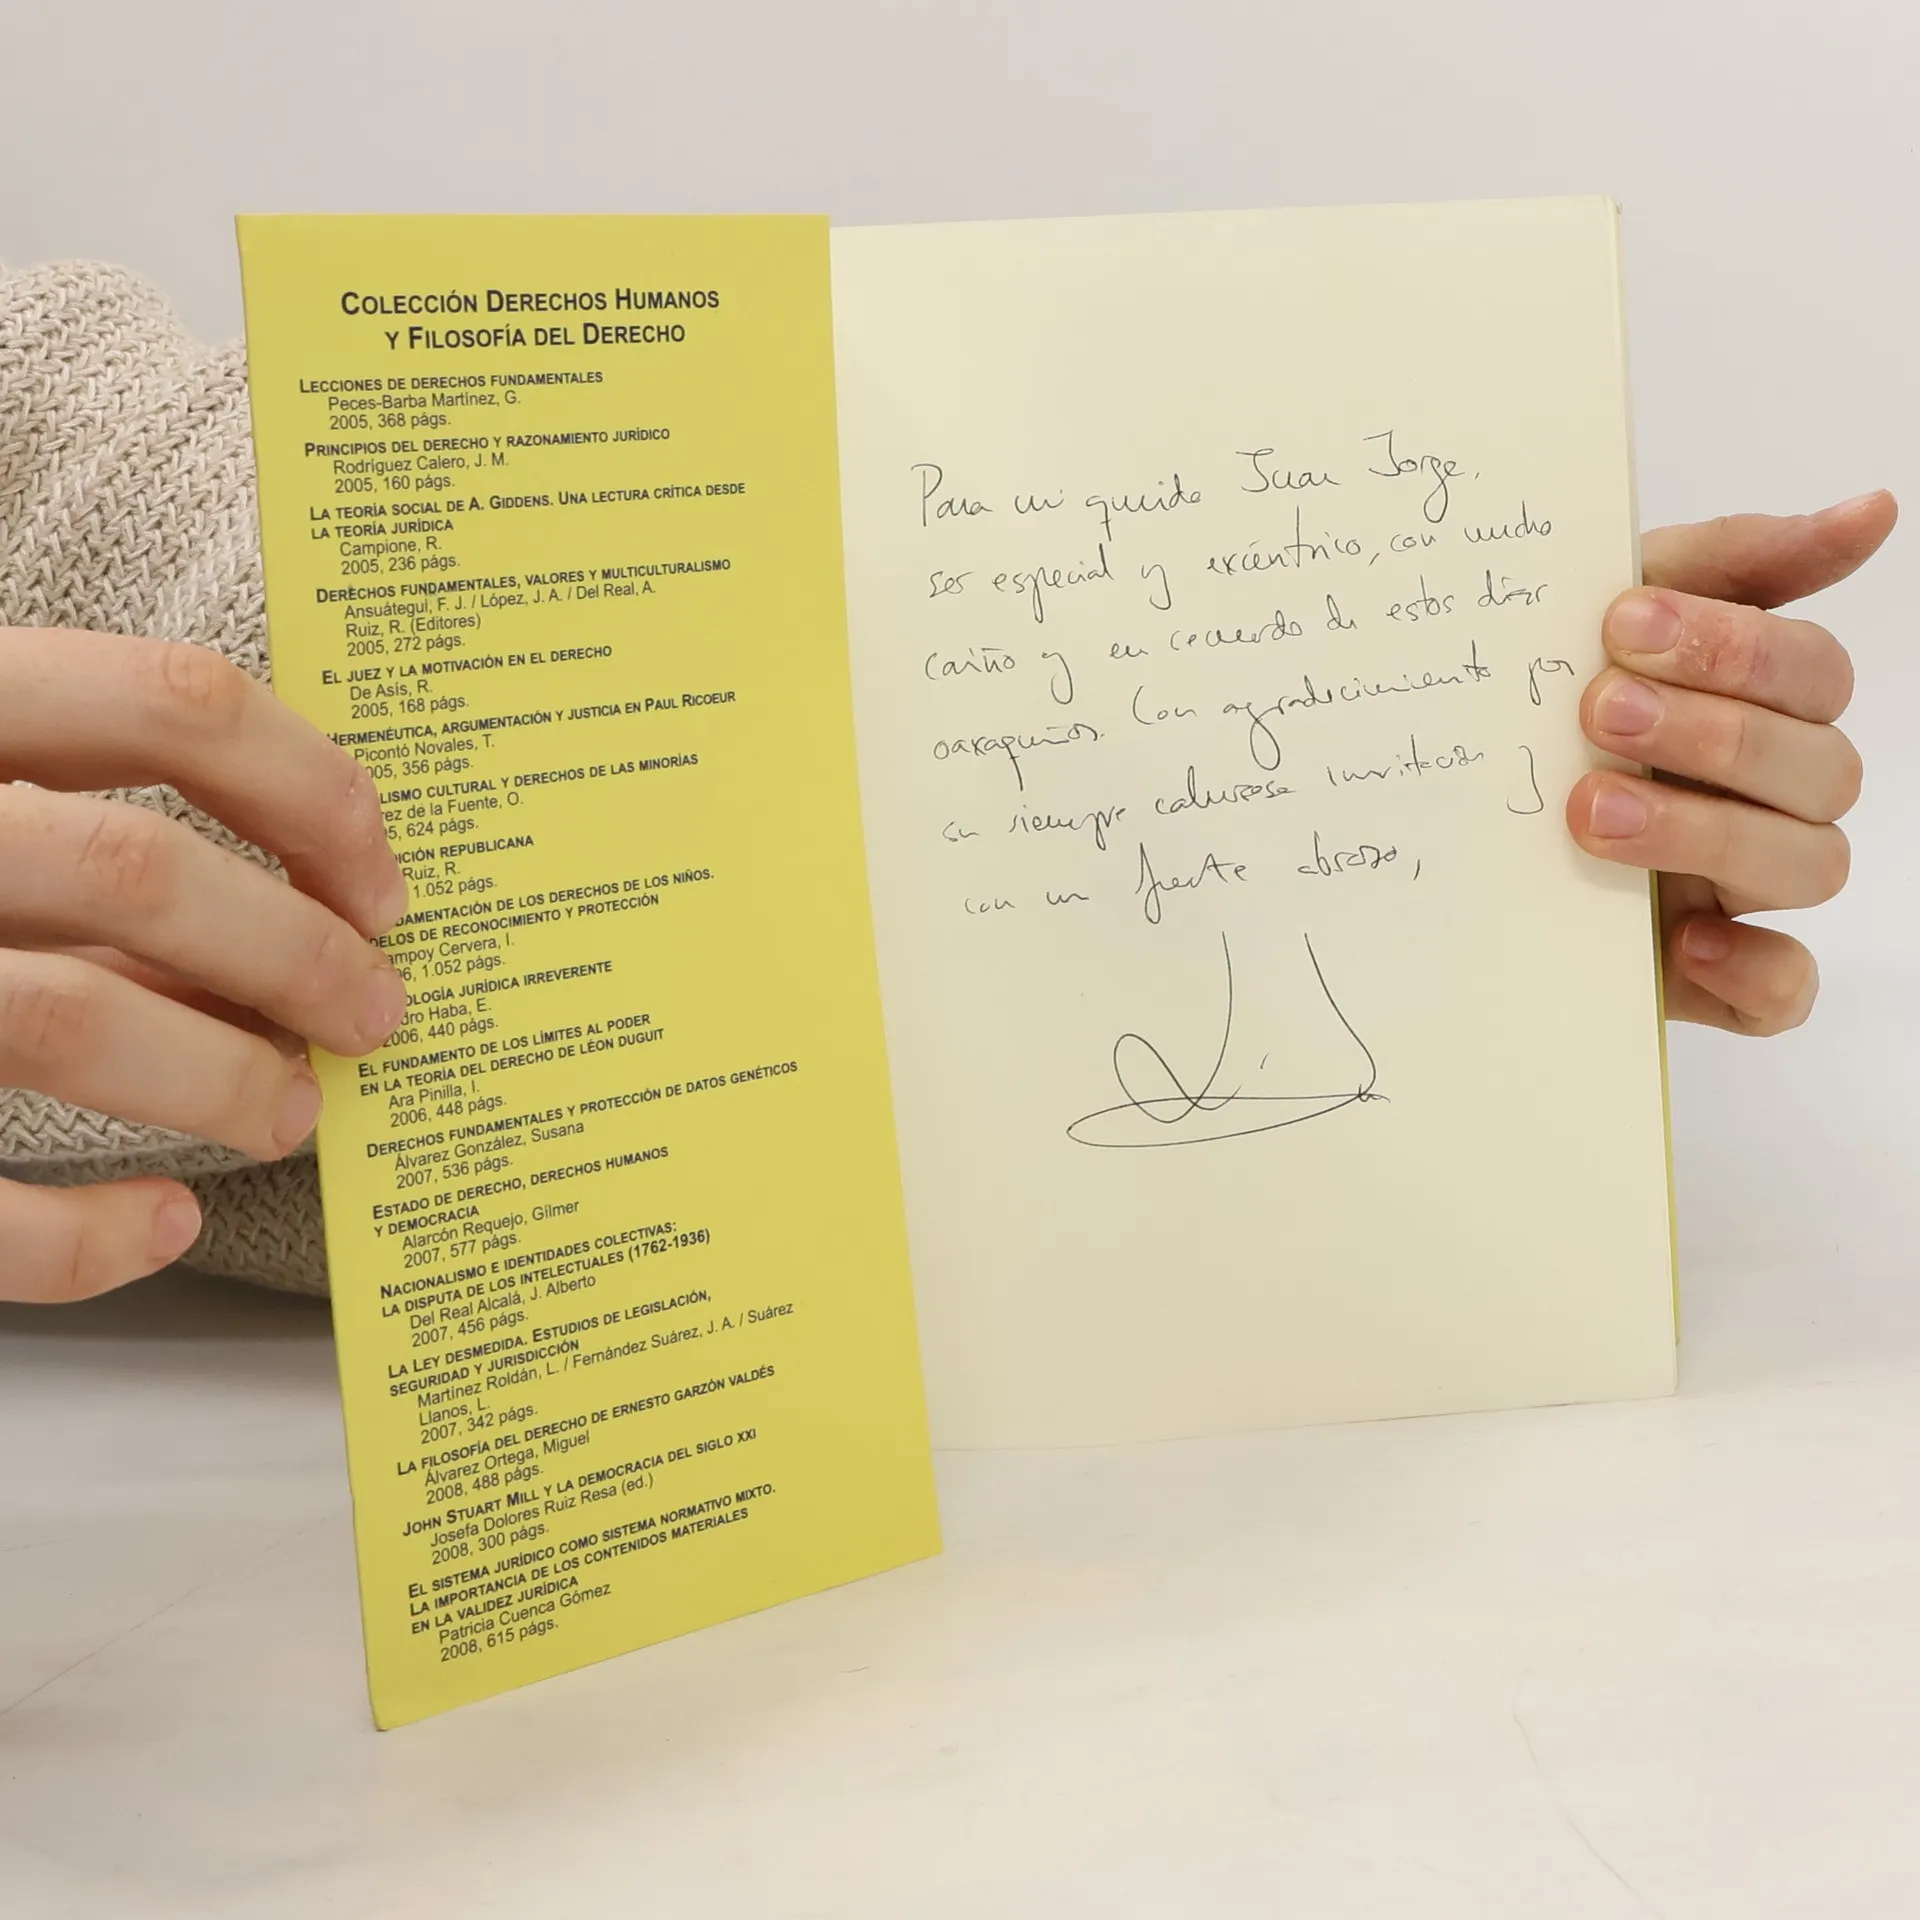 COLECCIÓN DERECHOS HUMANOS
Y FILOSOFÍA DEL DERECHO
LECCIONES DE DERECHOS FUNDAMENTALES
Peces-Barba Martínez, G.
2005, 368 págs.
PRINCIPIOS DEL DERECHO Y RAZONAMIENTO JURÍDICO
Rodríguez Calero, J. M.
2005, 160 págs.
LA TEORÍA SOCIAL DE A. GIDDENS. UNA LECTURA CRÍTICA DESDE
LA TEORÍA JURÍDICA
Campione, R.
2005, 236 págs.
DERECHOS FUNDAMENTALES, VALORES Y MULTICULTURALISMO
Ansuátegui, F. J. / López, J. A. / Del Real, A.
Ruiz, R. (Editores)
2005, 272 págs.
EL JUEZ Y LA MOTIVACIÓN EN EL DERECHO
De Asís, R.
2005, 168 págs.
HERMENÉUTICA, ARGUMENTACIÓN Y JUSTICIA EN PAUL RICOEUR
Picontó Novales, T.
005, 356 págs.
LISMO CULTURAL Y DERECHOS DE LAS MINORÍAS
rez de la Fuente, O.
5, 624 págs.
ICIÓN REPUBLICANA
Ruiz, R.
1.052 págs.
DAMENTACIÓN DE LOS DERECHOS DE LOS NIÑOS.
DELOS DE RECONOCIMIENTO Y PROTECCIÓN
ampoy Cervera, I.
06, 1.052 págs.
OLOGÍA JURÍDICA IRREVERENTE
dro Haba, E.
2006, 440 págs.
EL FUNDAMENTO DE LOS LÍMITES AL PODER
EN LA TEORÍA DEL DERECHO DE LÉON DUGUIT
Ara Pinilla, I.
2006, 448 págs.
DERECHOS FUNDAMENTALES Y PROTECCIÓN DE DATOS GENÉTICOS
Álvarez González, Susana
2007, 536 págs.
ESTADO DE DERECHO, DERECHOS HUMANOS
Y DEMOCRACIA
Alarcón Requejo, Gílmer
2007, 577 págs.
NACIONALISMO E IDENTIDADES COLECTIVAS:
LA DISPUTA DE LOS INTELECTUALES (1762-1936)
Del Real Alcalá, J. Alberto
2007, 456 págs.
LA LEY DESMEDIDA. ESTUDIOS DE LEGISLACIÓN,
SEGURIDAD Y JURISDICCIÓN
Martínez Roldán, L. / Fernández Suárez, J. A. / Suárez
Llanos, L.
2007, 342 págs.
LA FILOSOFÍA DEL DERECHO DE ERNESTO GARZÓN VALDÉS
Álvarez Ortega, Miguel
2008, 488 págs.
JOHN STUART MILL Y LA DEMOCRACIA DEL SIGLO XXI
Josefa Dolores Ruiz Resa (ed.)
2008, 300 págs.
EL SISTEMA JURÍDICO COMO SISTEMA NORMATIVO MIXTO.
LA IMPORTANCIA DE LOS CONTENIDOS MATERIALES
EN LA VALIDEZ JURÍDICA
Patricia Cuenca Gómez
2008, 615 págs.
Para mi querido Juan Jorge,
ser especial y excéntrico, con mucho
cariño y en recuerdo de estos días
oaxaqueños. Con agradecimiento por
su siempre calurosa invitación y
con un fuerte abrazo,